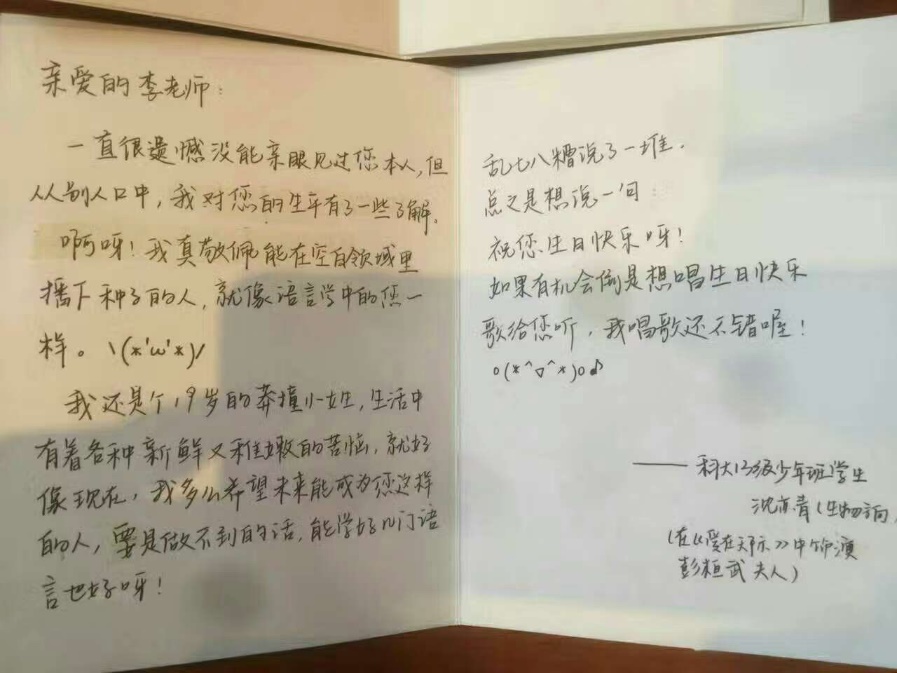 亲爱的李老师：
一直很遗憾没能亲眼见过您本人，但
从别人口中，我对您的生平有了一些了解。
啊呀！我真敬佩能在空白领域里
播下种子的人，就像语言学中的您一
样。\(*'ω'*)/
我还是个19岁的莽撞小姓，生活中
有着各种新鲜又稚嫩的苦恼，就好
像现在，我多么希望未来能成为您这样
的人，要是做不到的话，能学好几门语
言也好呀！
乱七八糟说了一堆，
总之是想说一句：
祝您生日快乐呀！
如果有机会倒是想唱生日快乐
歌给您听，我唱歌还不错喔！
o(*^▽^*)o♪
—— 科大13级少年班学生
沈亦青(生物方向，
(在《爱在天际》中饰演
彭桓武夫人)